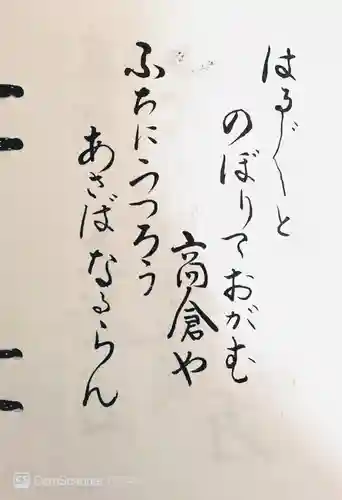 はるばると
のぼりておがむ
高倉や
ふちにうつろう
あさばなるらん
CS CamScanner